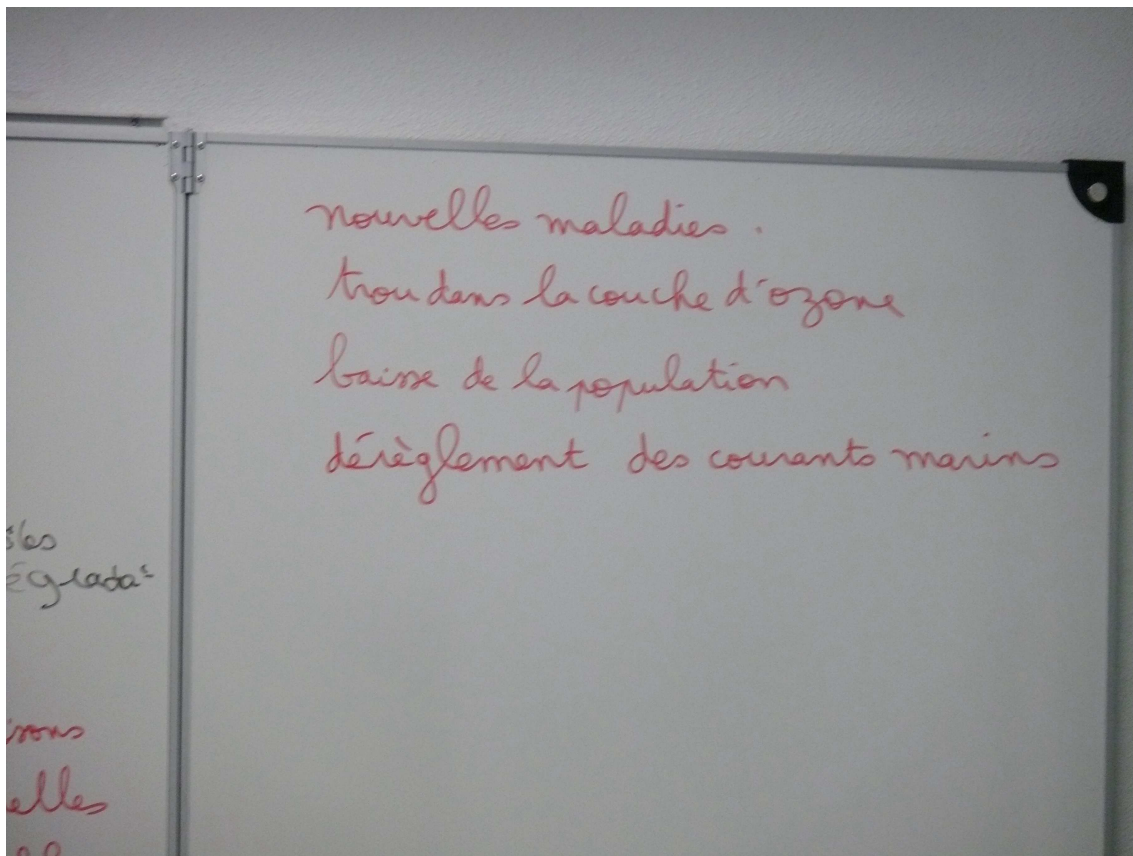 nouvelles maladies.
trou dans la couche d'ozone
baisse de la population
dérèglement des courants marins
elles